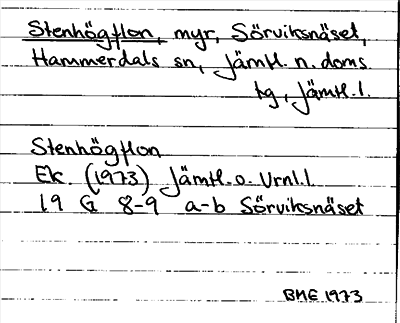 Stenhögflon, myr, Sörviksnäset,
Hammerdals sn, Jämtl. n. doms.
tg, Jämtl. l.
Stenhögflon
Ek. (1973) Jämtl. o. Vrnl. l.
19 G 8-9 a-b Sörviksnäset
BME 1973